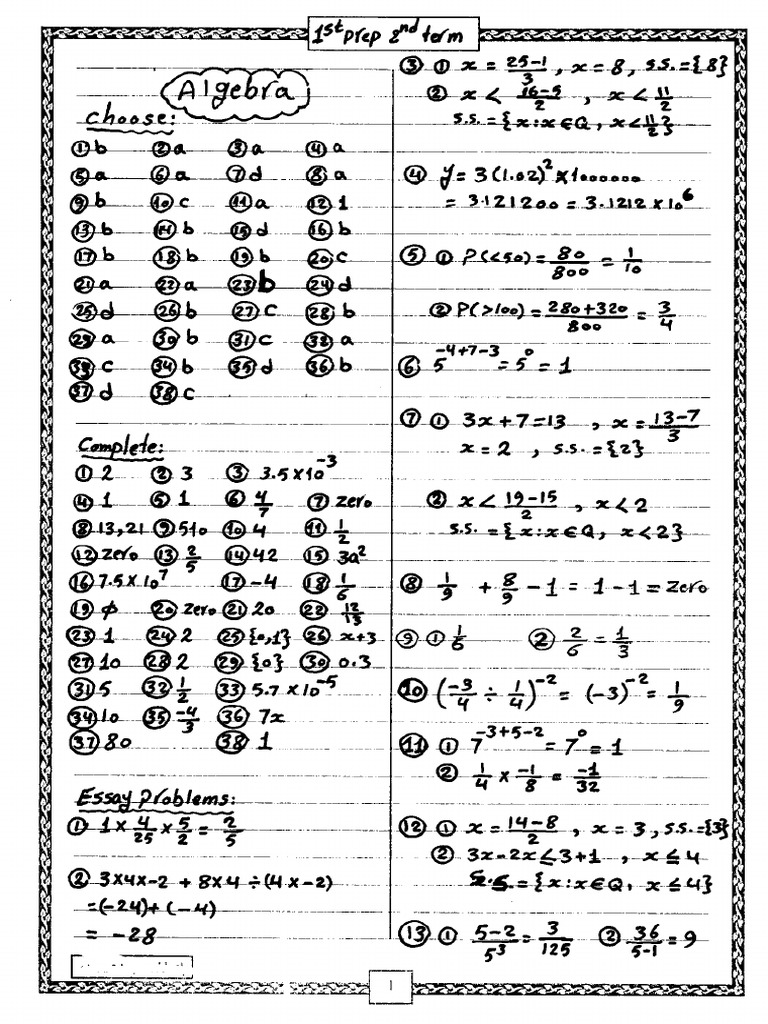 1st prep 2nd term
Algebra
Choose:
① b ② a ③ a ④ a
⑤ a ⑥ a ⑦ d ⑧ a
⑨ b ⑩ c ⑪ a ⑫ 1
⑬ b ⑭ b ⑮ d ⑯ b
⑰ b ⑱ b ⑲ b ⑳ c
㉑ a ㉒ a ㉓ b ㉔ d
㉕ d ㉖ b ㉗ c ㉘ b
㉙ a ㉚ b ㉛ c ㉜ a
㉝ c ㉞ b ㉟ d ㊱ b
㊲ d ㊳ c
Complete:
① 2 ② 3 ③ 3.5 × 10⁻³
④ 1 ⑤ 1 ⑥ 4/7 ⑦ zero
⑧ 13, 21 ⑨ 510 ⑩ 4 ⑪ 1/2
⑫ zero ⑬ 2/5 ⑭ 42 ⑮ 3a²
⑯ 7.5 × 10⁷ ⑰ -4 ⑱ 1/6
⑲ φ ⑳ zero ㉑ 20 ㉒ 12/13
㉓ 1 ㉔ 2 ㉕ {0,1} ㉖ x+3
㉗ 10 ㉘ 2 ㉙ {0} ㉚ 0.3
㉛ 5 ㉜ 1/2 ㉝ 5.7 × 10⁻⁵
㉞ 10 ㉟ -4/3 ㊱ 7x
㊲ 80 ㊳ 1
Essay Problems:
① 1 × 4/25 × 5/2 = 2/5
② 3×4×-2 + 8×4 ÷ (4×-2)
= (-24) + (-4)
= -28
③ ① x = (25-1)/3 , x = 8 , s.s. = {8}
② x < (16-5)/2 , x < 11/2
s.s. = {x : x ∈ Q , x < 11/2}
④ y = 3(1.02)² × 1000000
= 3.121200 = 3.1212 × 10⁶
⑤ ① P(<50) = 80/800 = 1/10
② P(>100) = (280+320)/800 = 3/4
⑥ 5⁻⁴⁺⁷⁻³ = 5⁰ = 1
⑦ ① 3x + 7 = 13 , x = (13-7)/3
x = 2 , s.s. = {2}
② x < (19-15)/2 , x < 2
s.s. = {x : x ∈ Q, x < 2}
⑧ 1/9 + 8/9 - 1 = 1 - 1 = zero
⑨ ① 1/6 ② 2/6 = 1/3
⑩ (-3/4 ÷ 1/4)⁻² = (-3)⁻² = 1/9
⑪ ① 7⁻³⁺⁵⁻² = 7⁰ = 1
② 1/4 × -1/8 = -1/32
⑫ ① x = (14-8)/2 , x = 3 , s.s. = {3}
② 3x - 2x ≤ 3 + 1 , x ≤ 4
S.S = {x : x ∈ Q, x ≤ 4}
⑬ ① (5-2)/5³ = 3/125 ② 36/(5-1) = 9
1